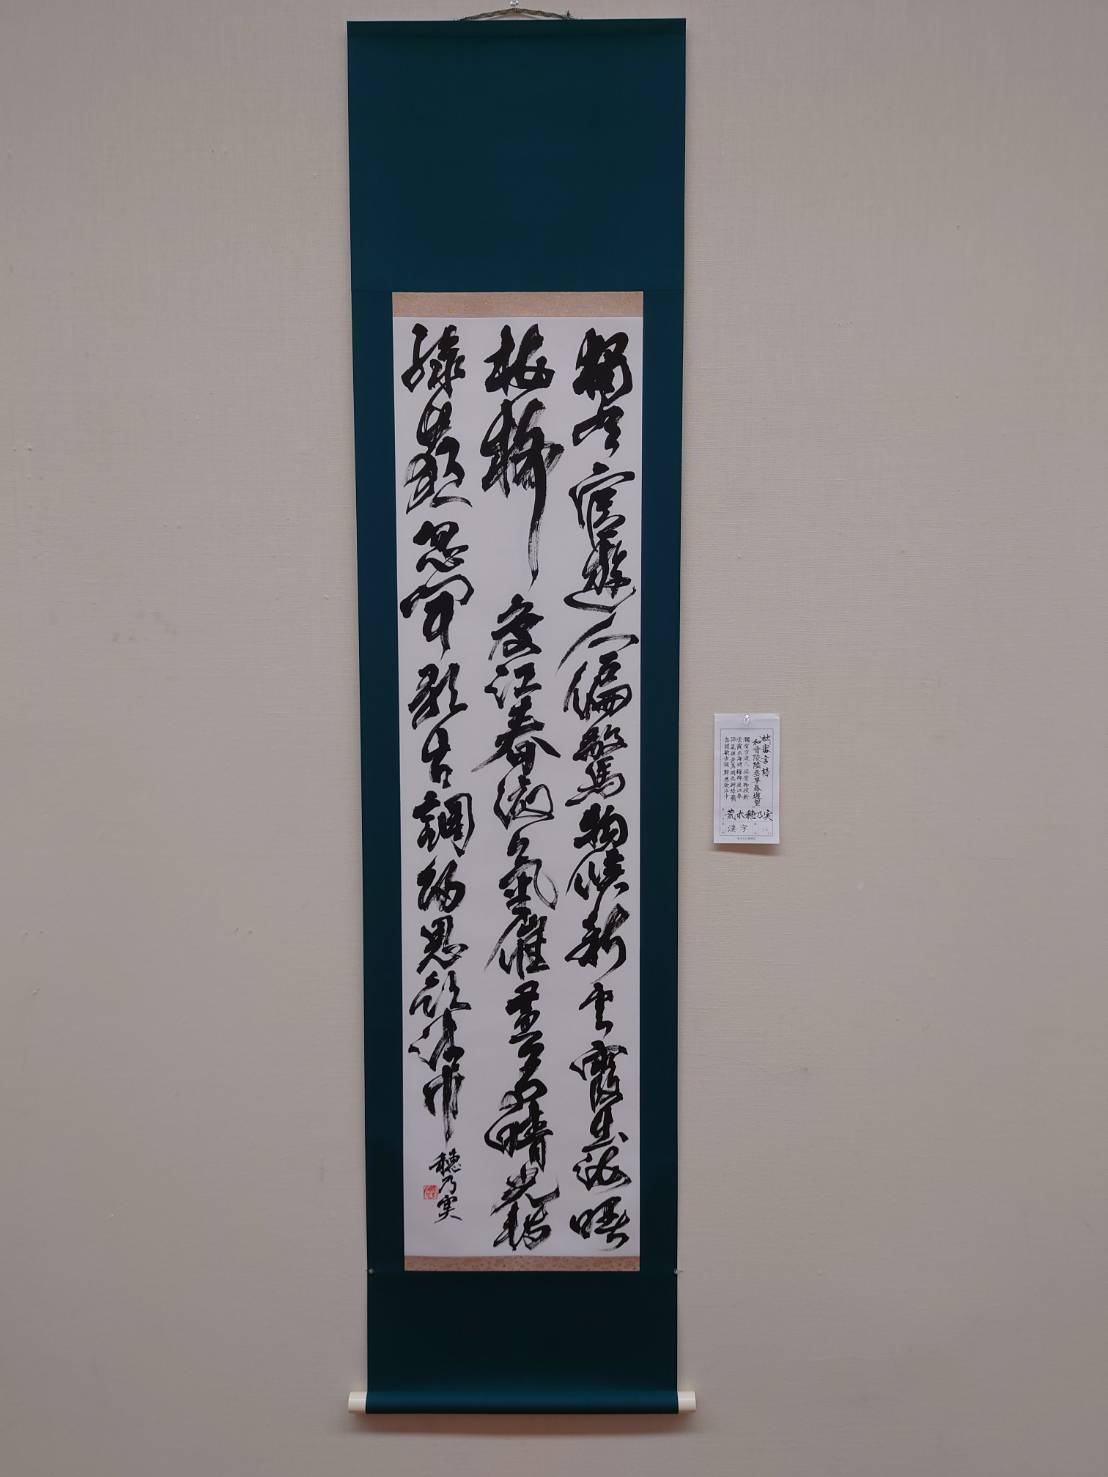 獨有宦遊人偏驚物候新雲霞出海曙
梅柳渡江春淑氣催黄鳥晴光轉
緑蘋忽聞歌古調歸思欲沾巾
穂乃実
杜審言詩
和晋陵陸丞早春遊望
獨有宦遊人 偏驚物候新
雲霞出海曙 梅柳渡江春
淑氣催黄鳥 晴光轉緑蘋
忽聞歌古調 歸思欲沾巾
穂乃実
漢字